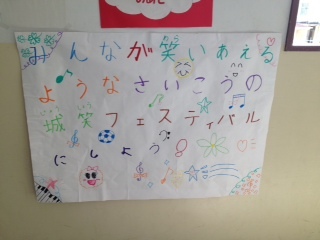 みんなが笑いあえる
ような さいこうの
城笑フェスティバル
にしよう!